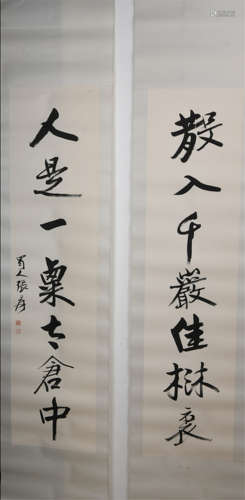 散入千巖佳樹裏
人是一粟太倉中
蜀人張爰